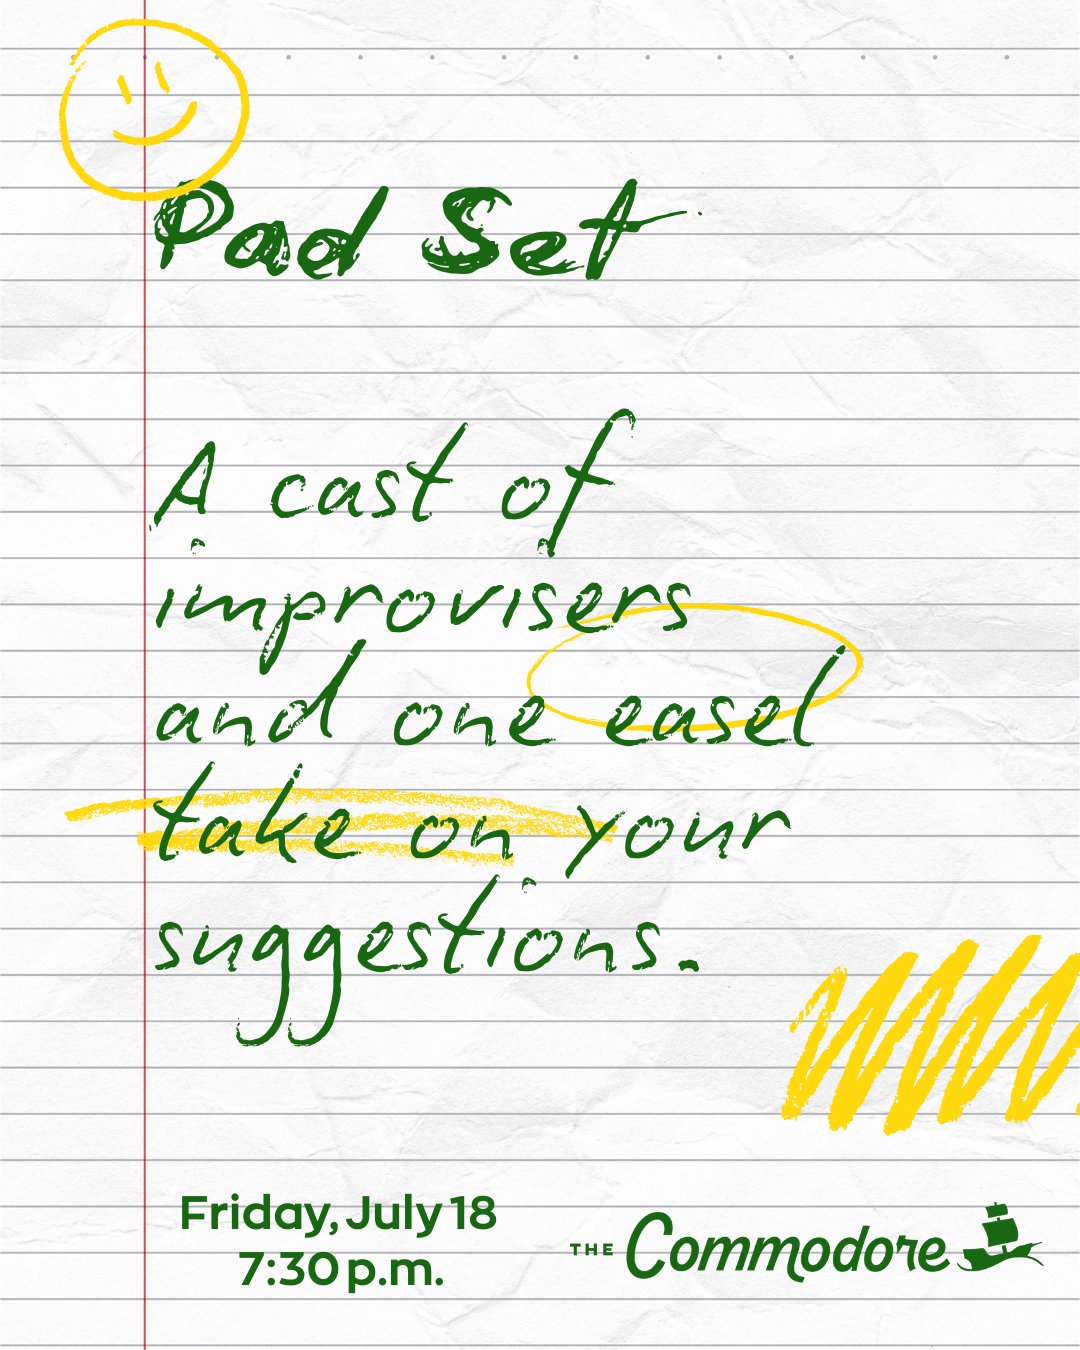 Pad Set
A cast of
improvisers
and one easel
take on your
suggestions.
Friday, July 18
7:30 p.m.
THE Commodore